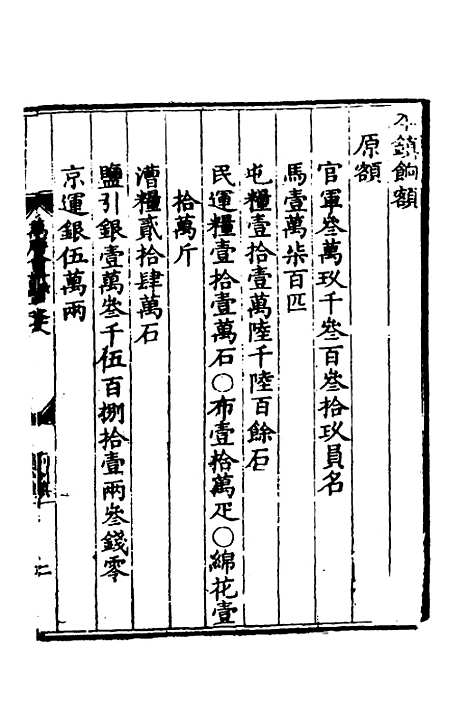 本鎮餉額
原額
官軍叁萬玖千叁百叁拾玖員名
馬壹萬柒百匹
屯糧壹拾壹萬陸千陸百餘石
民運糧壹拾壹萬石〇布壹拾萬疋〇綿花壹
拾萬斤
漕糧貳拾肆萬石
鹽引銀壹萬叁千伍百捌拾壹兩叁錢零
京運銀伍萬兩